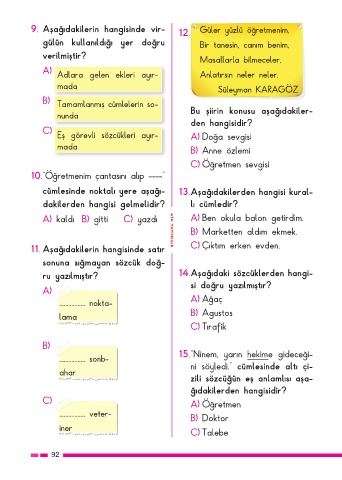 9. Aşağıdakilerin hangisinde vir-
gülün kullanıldığı yer doğru
verilmiştir?
A) Adlara gelen ekleri ayır-
mada
B) Tamamlanmış cümlelerin so-
nunda
C) Eş görevli sözcükleri ayır-
mada
10. "Öğretmenim çantasını alıp ----"
cümlesinde noktalı yere aşağı-
dakilerden hangisi gelmelidir?
A) kaldı B) gitti C) yazdı
11. Aşağıdakilerin hangisinde satır
sonuna sığmayan sözcük doğ-
ru yazılmıştır?
A)
................ nokta-
lama
B)
................ sonb-
ahar
C)
................ veter-
iner
92
12. Güler yüzlü öğretmenim,
Bir tanesin, canım benim,
Masallarla bilmeceler,
Anlatırsın neler neler.
Süleyman KARAGÖZ
Bu şiirin konusu aşağıdakiler-
den hangisidir?
A) Doğa sevgisi
B) Anne özlemi
C) Öğretmen sevgisi
13. Aşağıdakilerden hangisi kural-
lı cümledir?
A) Ben okula balon getirdim.
B) Marketten aldım ekmek.
C) Çıktım erken evden.
14. Aşağıdaki sözcüklerden hangi-
si doğru yazılmıştır?
A) Ağaç
B) Agustos
C) Tırafik
15. "Ninem, yarın hekime gideceği-
ni söyledi." cümlesinde altı çi-
zili sözcüğün eş anlamlısı aşa-
ğıdakilerden hangisidir?
A) Öğretmen
B) Doktor
C) Talebe